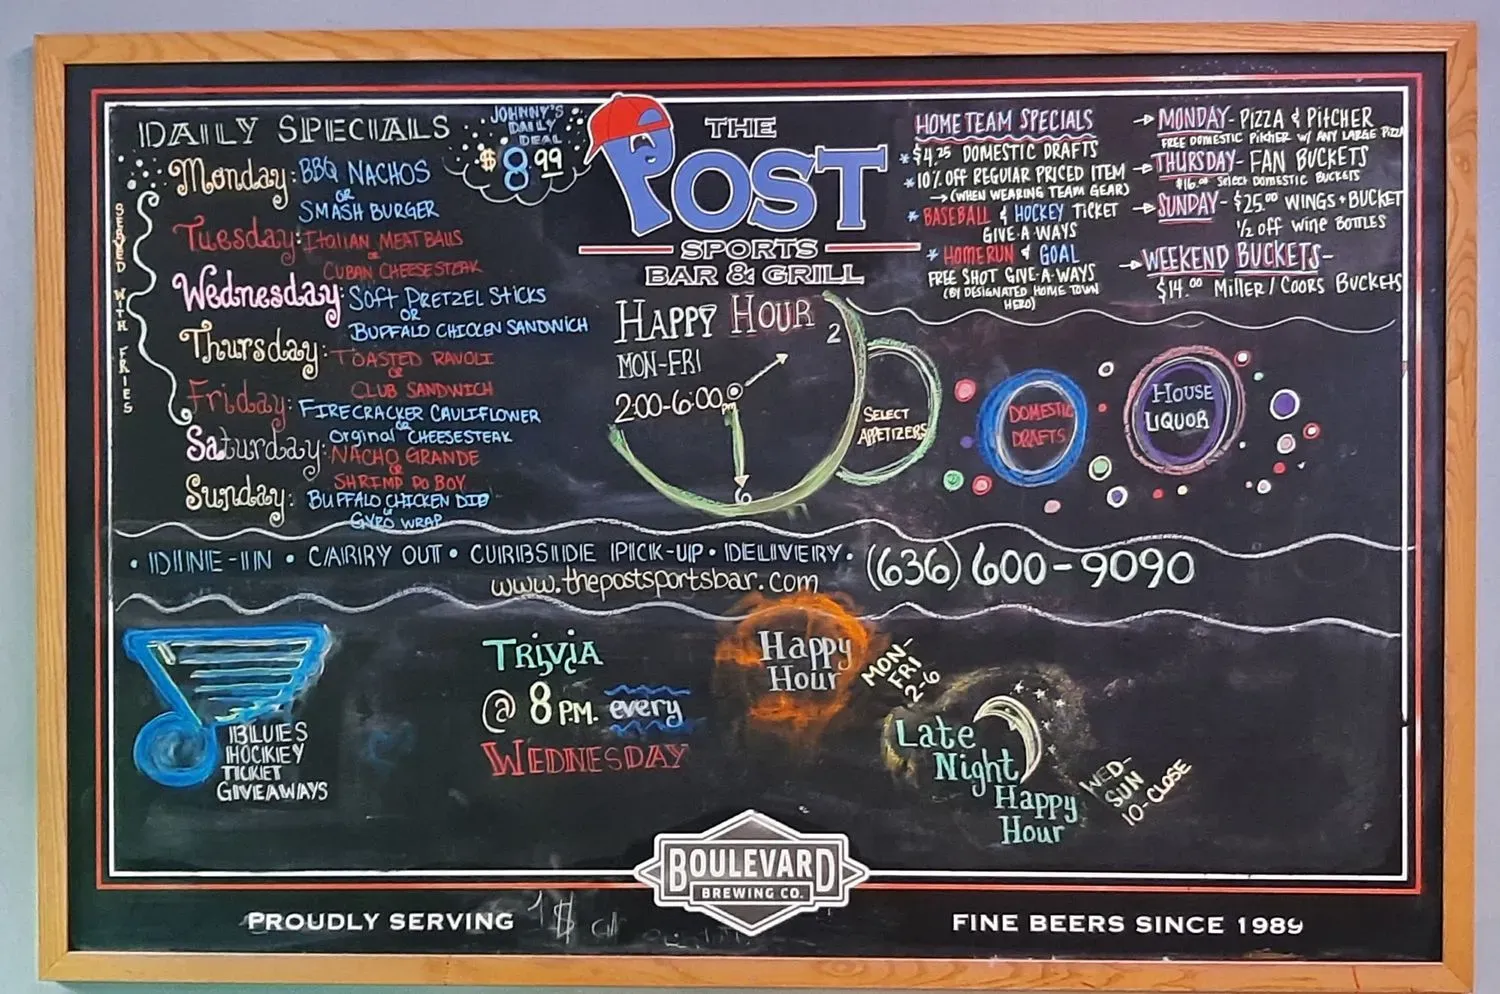 DAILY SPECIALS
JOHNNY'S
DAILY
DEAL
$8.99
Monday: BBQ NACHOS
OR
SMASH BURGER
Tuesday: ITALIAN MEATBALLS
OR
CUBAN CHEESESTEAK
Wednesday: SOFT PRETZEL STICKS
OR
BUFFALO CHICKEN SANDWICH
Thursday: TOASTED RAVOLI
CLUB SANDWICH
Friday: FIRECRACKER CAULIFLOWER
OR
Orginal CHEESESTEAK
Saturday: NACHO GRANDE
OR
SHRIMP PO BOY
Sunday: BUFFALO CHICKEN DIP
or
GYRO WRAP
SERVED WITH FRIES
THE
POST
SPORTS
BAR & GRILL
HAPPY HOUR
MON-FRI
2:00-6:00pm
2
6
SELECT
APPETIZERS
DOMESTIC
DRAFTS
HOUSE
LIQUOR
HOME TEAM SPECIALS
* $4.25 DOMESTIC DRAFTS
* 10% OFF REGULAR PRICED ITEM
→ (WHEN WEARING TEAM GEAR)
* BASEBALL & HOCKEY TICKET
GIVE-A-WAYS
* HOMERUN & GOAL
FREE SHOT GIVE-A-WAYS
(BY DESIGNATED HOME TOWN
HERO)
→ MONDAY- PIZZA & PITCHER
FREE DOMESTIC PITCHER W/ ANY LARGE PIZZA
→ THURSDAY- FAN BUCKETS
$16.00 Select DOMESTIC BUCKETS
→ SUNDAY- $25.00 WINGS + BUCKET
1/2 off wine BOTTLES
→ WEEKEND BUCKETS-
$14.00 Miller / Coors BUCKETS
• DINE-IN • CARRY OUT • CURBSIDE PICK-UP • DELIVERY • (636) 600-9090
www.thepostsportsbar.com
BLUES
HOCKEY
TICKET
GIVEAWAYS
TRIVIA
@ 8 P.M. every
WEDNESDAY
Happy
Hour
MON-
FRI
2-6
Late
Night
Happy
Hour
WED-
SUN
10-CLOSE
BOULEVARD
BREWING CO.
PROUDLY SERVING
FINE BEERS SINCE 1989